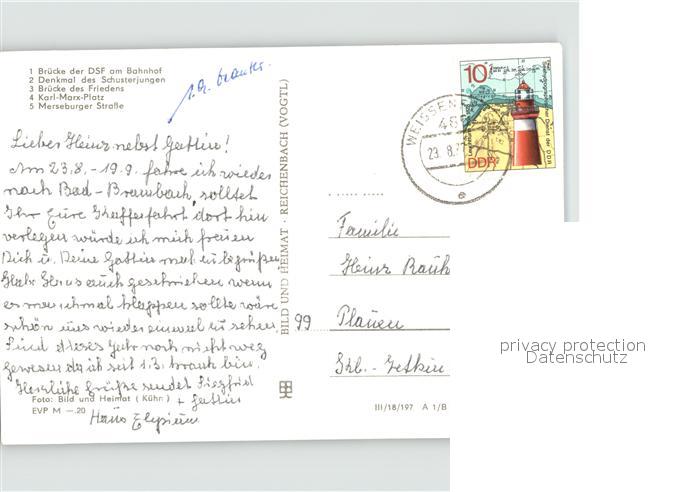 1 Brücke der DSF am Bahnhof
2 Denkmal des Schusterjungen
3 Brücke des Friedens
4 Karl-Marx-Platz
5 Merseburger Straße
Lieber Heinz nebst Gattin!
Am 23.8. - 19.9. fahre ich wieder
nach Bad-Brambach, solltet
Ihr Eure Kaffeefahrt dort hin
verlegen würde ich mich freuen
Dich u. Deine Gattin mal zu begrüßen
auch geschrieben wenn
es mal klappen sollte wäre
schön uns wieder einmal zu sehen
Sind dieses Jahr noch nicht weg
gewesen da ich seit 1.3. krank bin.
Herzliche Grüße sendet Siegfried
+ Gattin
Foto: Bild und Heimat (Kühn)
EVP M —.20
Haus Elysium
BILD UND HEIMAT · REICHENBACH (VOGTL)
WEISSEN
23.8.7
10
DDR
Familie
Heinz Rauh
99 Plauen
III/18/197 A 1/B
privacy protection
Datenschutz